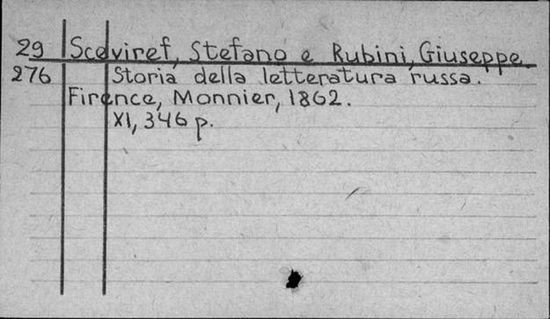 29 Sceviref, Stefano e Rubini, Giuseppe.
276 Storia della letteratura russa.
Firence, Monnier, 1862.
XI, 346 p.